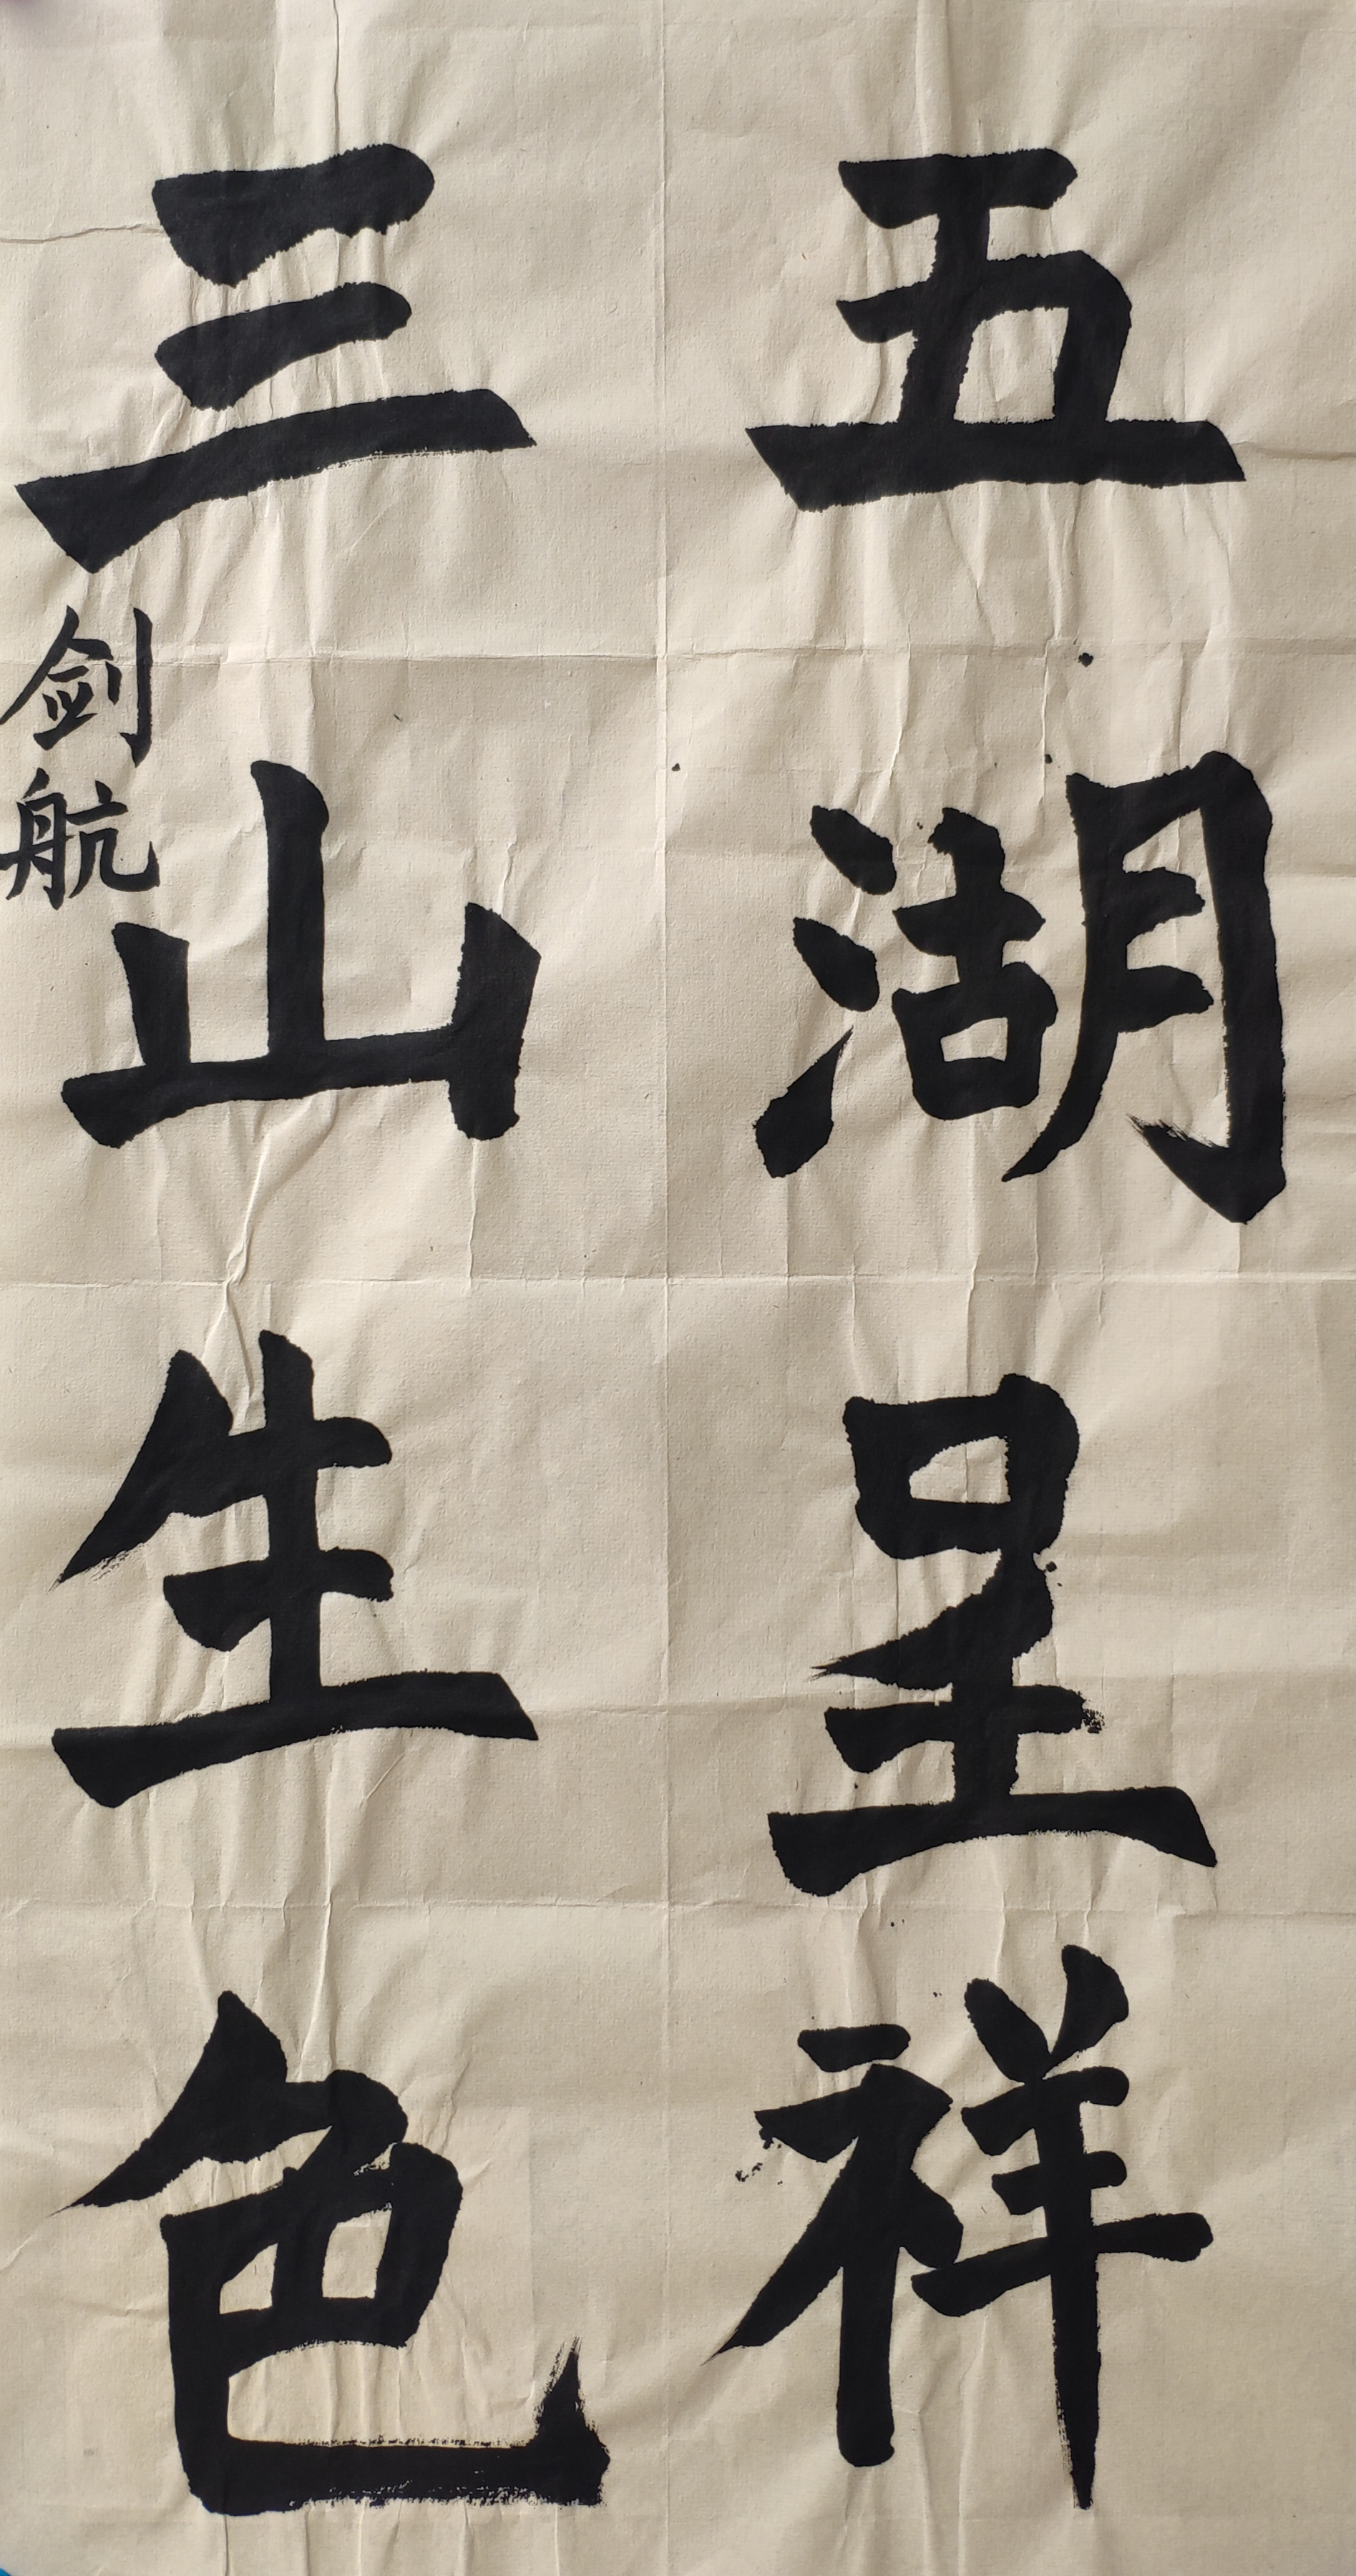 五湖呈祥
三山生色
剑航